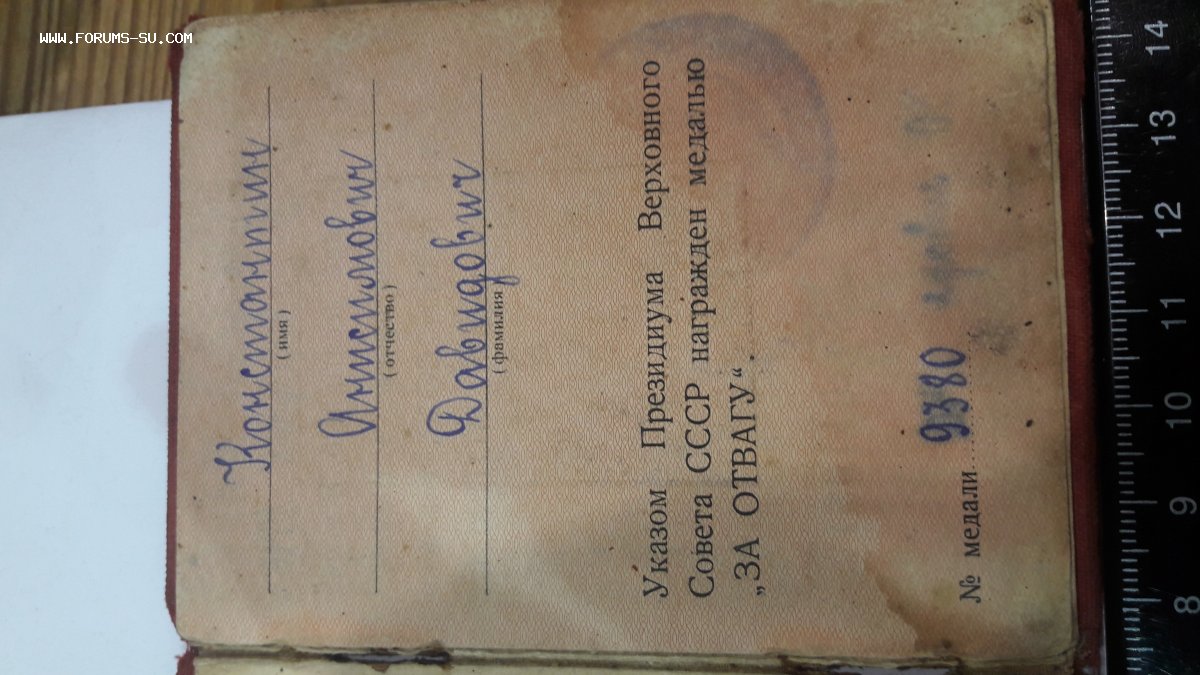 WWW.FORUMS-SU.COM
Константин
( имя )
Анисимович
( отчество )
Давидович
( фамилия )
Указом Президиума Верховного
Совета СССР награжден медалью
„ЗА ОТВАГУ“.
№ медали 9380
8 9 10 11 12 13 14